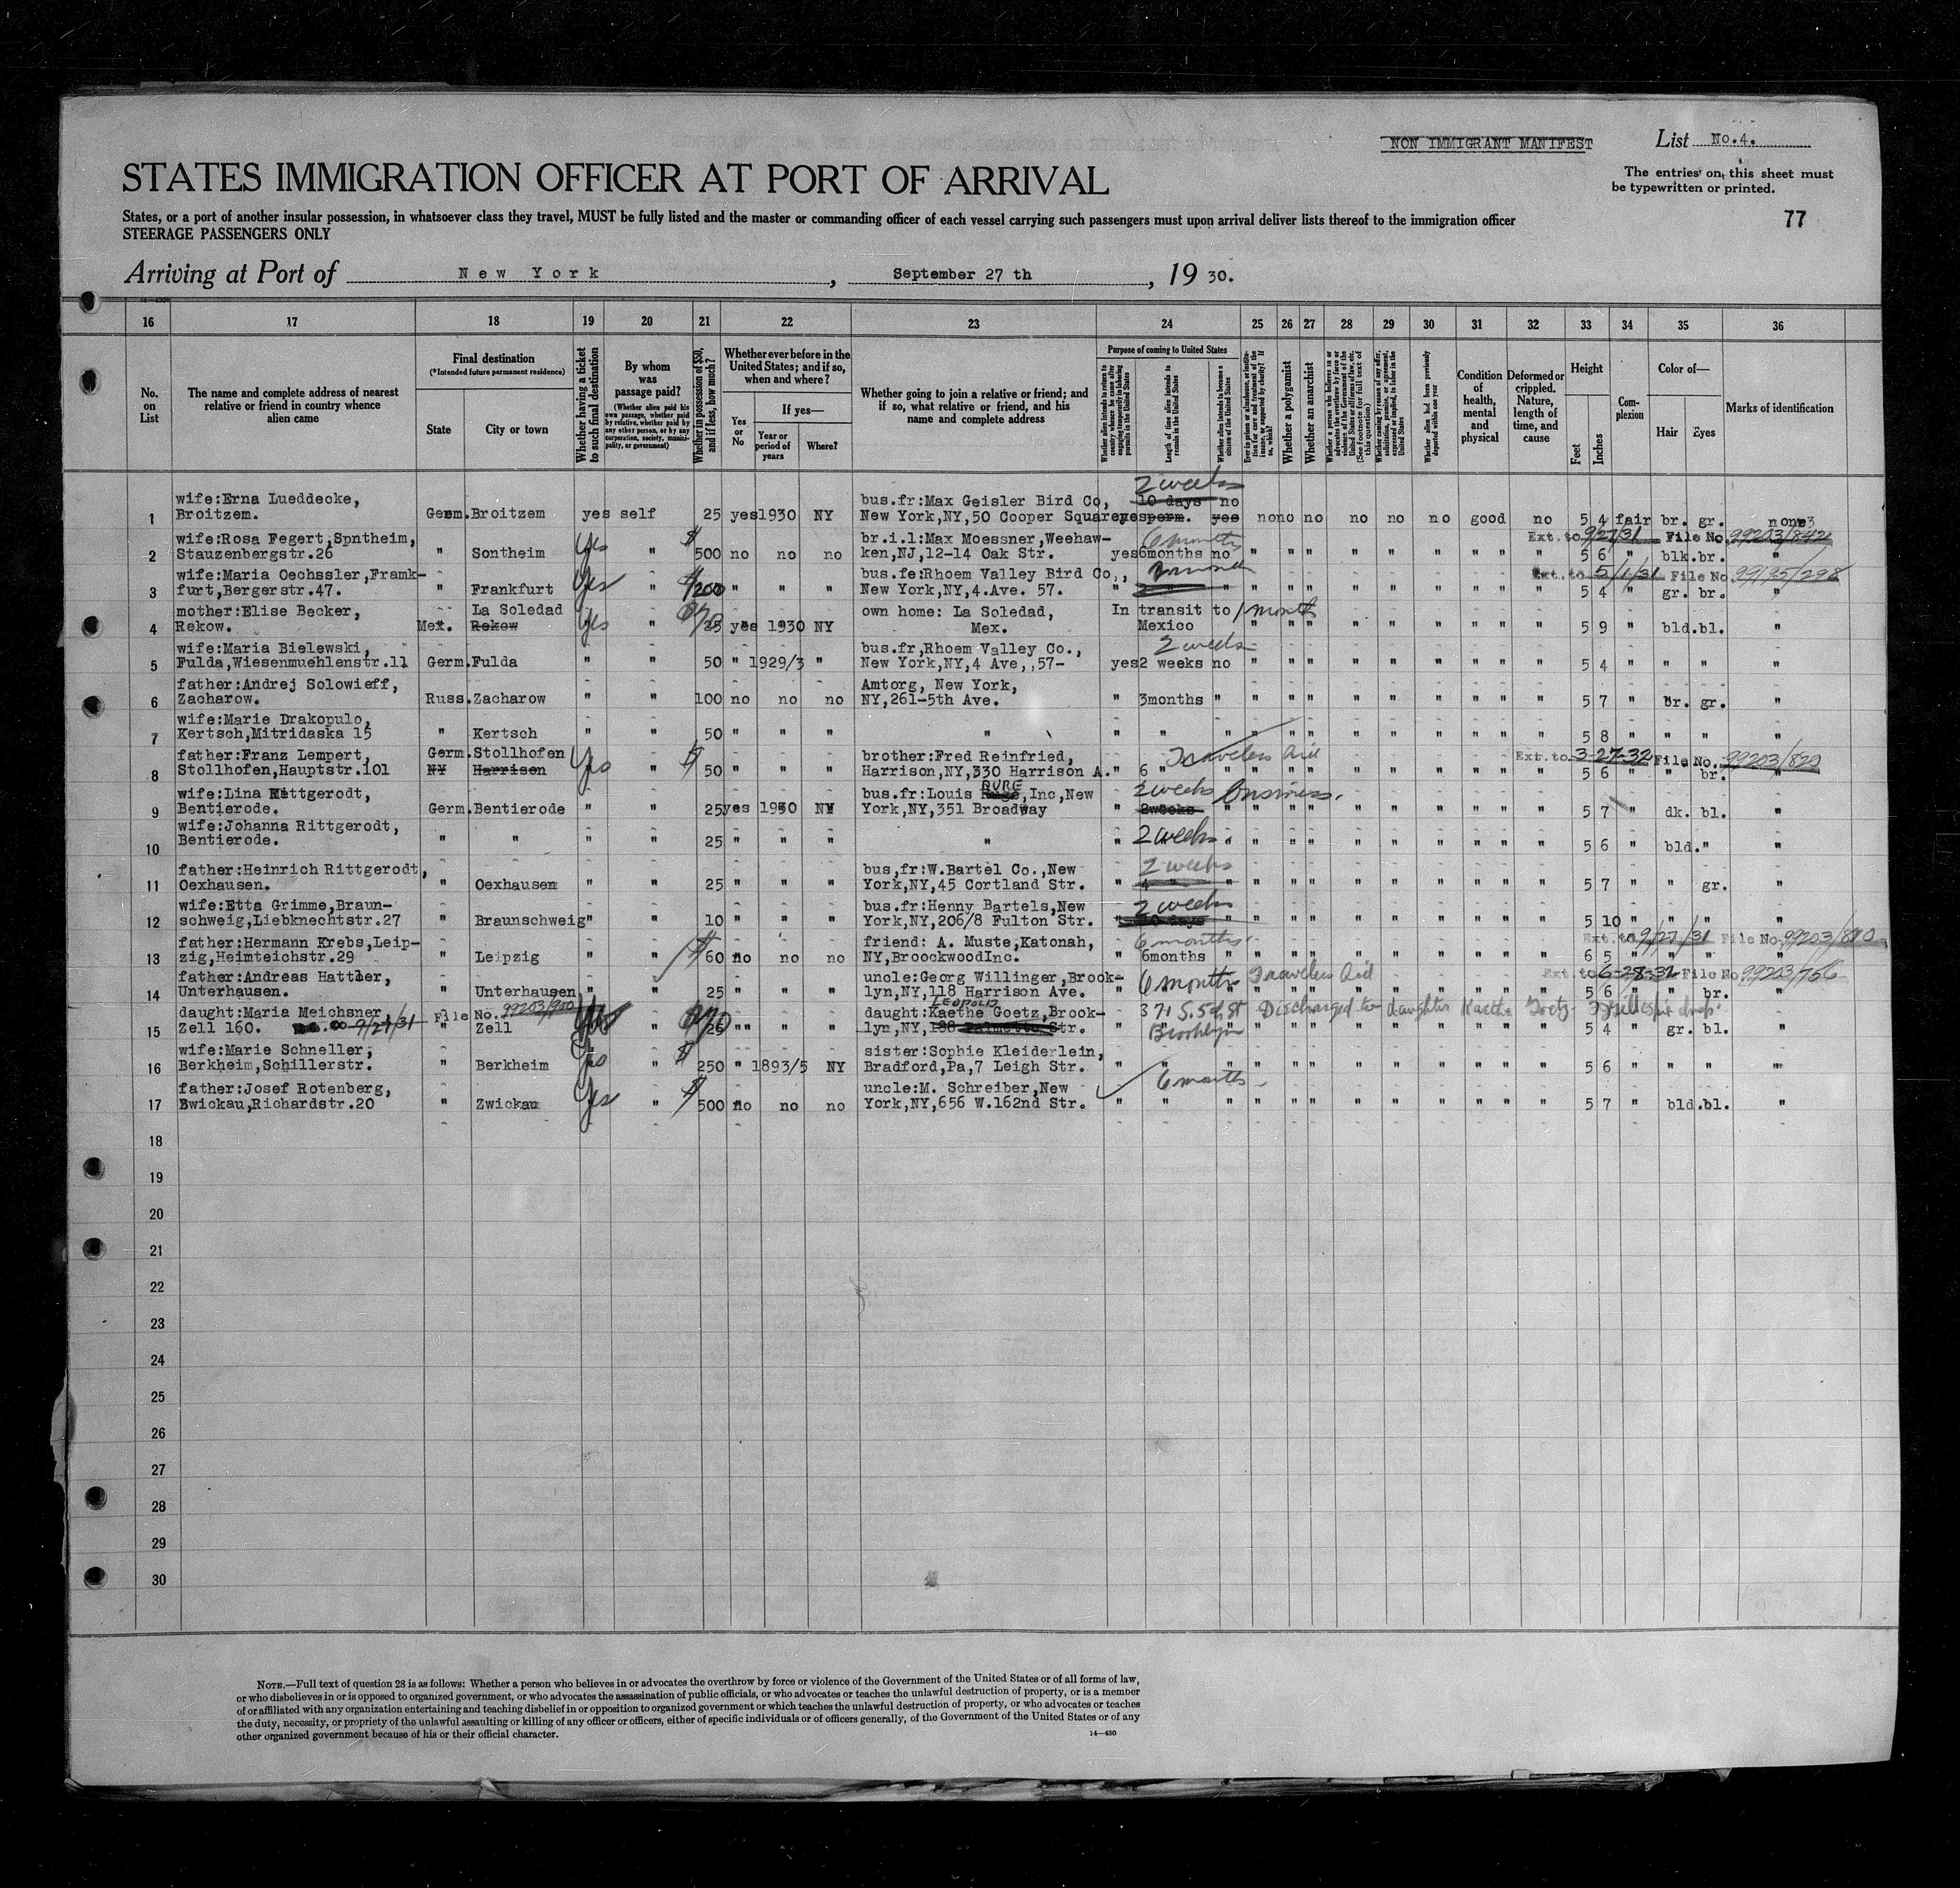 NON IMMIGRANT MANIFEST
List No.4.
STATES IMMIGRATION OFFICER AT PORT OF ARRIVAL
The entries on this sheet must
be typewritten or printed.
States, or a port of another insular possession, in whatsoever class they travel, MUST be fully listed and the master or commanding officer of each vessel carrying such passengers must upon arrival deliver lists thereof to the immigration officer
77
STEERAGE PASSENGERS ONLY
Arriving at Port of New York, September 27 th, 19 30.
16 17 18 19 20 21 22 23 24 25 26 27 28 29 30 31 32 33 34 35 36
No. on List
The name and complete address of nearest relative or friend in country whence alien came
Final destination
(*Intended future permanent residence)
State
City or town
Whether having a ticket to such final destination
By whom was passage paid?
(Whether alien paid his own passage, whether paid by relative, whether paid by any other person, or by any corporation, society, municipality, or government)
Whether in possession of $50, and if less, how much?
Whether ever before in the United States; and if so, when and where?
Yes or No
If yes—
Year or period of years
Where?
Whether going to join a relative or friend; and if so, what relative or friend, and his name and complete address
Purpose of coming to United States
Length of time alien intends to remain in the United States
Whether alien intends to become a citizen of the United States
Whether a polygamist
Whether an anarchist
Whether alien had been previously deported within one year
Condition of health, mental and physical
Deformed or crippled. Nature, length of time, and cause
Height
Feet
Inches
Complexion
Color of—
Hair
Eyes
Marks of identification
2 weeks
wife:Erna Lueddecke, bus.fr:Max Geisler Bird Co, 10 days no
1 Broitzem. Germ. Broitzem yes self 25 yes 1930 NY New York,NY,50 Cooper Square yes perm. yes no no no no no no good no 5 4 fair br. gr. none
wife:Rosa Fegert,Spntheim, br.i.l:Max Moessner,Weehaw- 6 months Ext. to 9/27/31 File No. 99203/842
2 Stauzenbergstr.26 " Sontheim Yes " $ 500 no no no ken,NJ,12-14 Oak Str. yes 6months no " " " " " " " " " 5 6 " blk. br. "
wife:Maria Oechssler,Framk- bus.fe:Rhoem Valley Bird Co,, Ext. to 5/1/31 File No. 99195/298
3 furt,Bergerstr.47. " Frankfurt Yes " $ 200 " " " New York,NY,4.Ave. 57. " " " " " " " " " " " 5 4 " gr. br. "
mother:Elise Becker, La Soledad own home: La Soledad, In transit to 1 month
4 Rekow. Mex. Rekow Yes " 25 yes 1930 NY Mex. Mexico " " " " " " " " " 5 9 " bld. bl. "
wife:Maria Bielewski, bus.fr,Rhoem Valley Co., 2 weeks
5 Fulda,Wiesenmuehlenstr.11 Germ. Fulda " " 50 " 1929/3 " New York,NY,4 Ave,,57- yes 2 weeks no " " " " " " " " " 5 4 " " " "
father:Andrej Solowieff, Amtorg, New York,
6 Zacharow. Russ. Zacharow " " 100 no no no NY,261-5th Ave. " 3months " " " " " " " " " " 5 7 " br. gr. "
wife:Marie Drakopulo,
7 Kertsch,Mitridaska 15 " Kertsch " " 50 " " " " " " " " " " " " " " " " 5 8 " " " "
father:Franz Lempert, Germ. Stollhofen brother:Fred Reinfried, Travelers Aid Ext. to 3-27-32 File No. 99203/820
8 Stollhofen,Hauptstr.101 NY Harrison Yes " $ 50 " " " Harrison,NY,330 Harrison A. " 6 " " " " " " " " " " " 5 6 " " br. "
wife:Lina Rittgerodt, bus.fr:Louis RUHE,Inc,New 2 weeks business.
9 Bentierode. Germ. Bentierode " " 25 yes 1930 NY York,NY,351 Broadway 2weeks " " " " " " " " " " 5 7 " dk. bl. "
wife:Johanna Rittgerodt,
10 Bentierode. " " " " 25 " " " " " 2 weeks " " " " " " " " " " 5 6 " bld. " "
father:Heinrich Rittgerodt, bus,fr:W.Bartel Co.,New 2 weeks
11 Oexhausen. " Oexhausen " " 25 " " " York,NY,45 Cortland Str. " 4 " " " " " " " " " " " 5 7 " " gr. "
wife:Etta Grimme,Braun- bus.fr:Henny Bartels,New 2 weeks
12 schweig,Liebknechtstr.27 " Braunschweig " " 10 " " " York,NY,206/8 Fulton Str. " 10 days " " " " " " " " " " 5 10 " " " "
father:Hermann Krebs,Leip- friend: A. Muste,Katonah, 6 months Ext. to 9/27/31 File No. 99203/810
13 zig,Heimteichstr.29 " Leipzig " " $ 60 no no no NY,BroockwoodInc. " 6months " " " " " " " " " " 6 5 " " " "
father:Andreas Hattler, uncle:Georg Willinger,Brook- 6 months Travelers Aid Ext. to 6-28-31 File No. 99203/756
14 Unterhausen. " Unterhausen " " 25 " " " lyn,NY,118 Harrison Ave. " " " " " " " " " " " 5 6 " " br. "
daught:Maria Meichsner, File No. 99203/900 LEOPOLD daught:Kaethe Goetz,Brook- 371 S. 5th St Discharged to daughter Kaethe Goetz
15 Zell 160. 9/27/31 " Zell Yes " 25 " " " lyn,NY,188 Palmetto Str. Brooklyn " " " " " " " " " " 5 4 " gr. bl. "
wife:Marie Schneller, sister:Sophie Kleiderlein,
16 Berkheim,Schillerstr. " Berkheim Yes " $ 250 " 1893/5 NY Bradford,Pa,7 Leigh Str. " " " " " " " " " " " " 5 6 " " " "
father:Josef Rotenberg, uncle:M. Schreiber,New 6 months
17 Zwickau,Richardstr.20 " Zwickau Yes " $ 500 no no no York,NY,656 W.162nd Str. " " " " " " " " " " " " 5 7 " bld. bl. "
18
19
20
21
22
23
24
25
26
27
28
29
30
NOTE.—Full text of question 28 is as follows: Whether a person who believes in or advocates the overthrow by force or violence of the Government of the United States or of all forms of law,
or who disbelieves in or is opposed to organized government, or who advocates the assassination of public officials, or who advocates or teaches the unlawful destruction of property, or is a member
of or affiliated with any organization entertaining and teaching disbelief in or opposition to organized government or which teaches the unlawful destruction of property, or who advocates or teaches
the duty, necessity, or propriety of the unlawful assaulting or killing of any officer or officers, either of specific individuals or of officers generally, of the Government of the United States or of any
other organized government because of his or their official character.
14—430